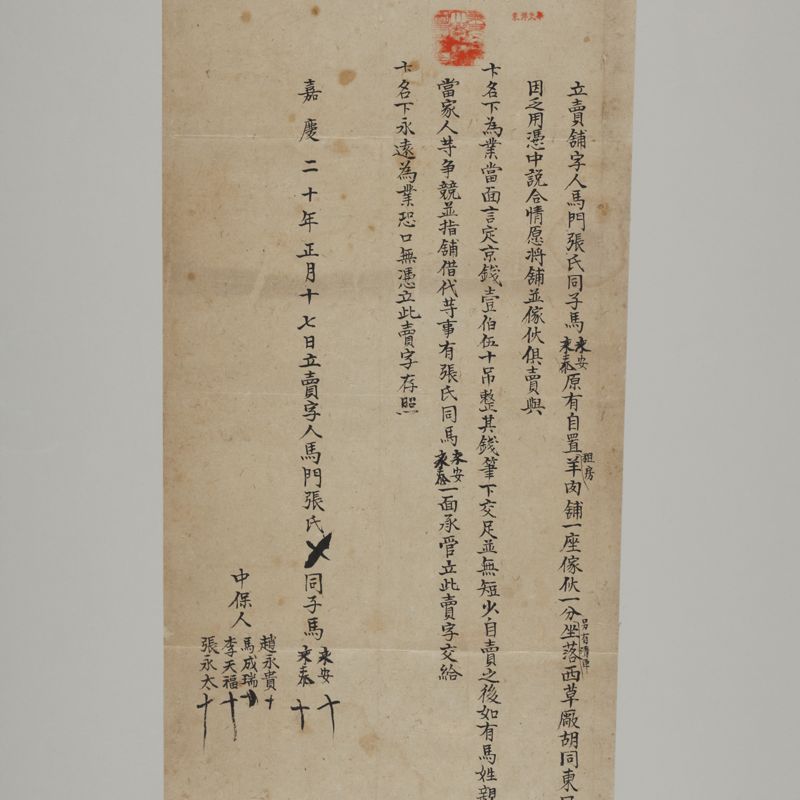 立賣舖字人馬門張氏同子馬永安永泰原有自置租房羊肉舖一座傢伙一分另有清單坐落西草厰胡同東
因乏用憑中説合情愿將舖並傢伙俱賣與
卞名下為業當面言定京錢壹伯伍十吊整其錢筆下交足並無短少自賣之後如有馬姓親
當家人䓁争競並指舖借代䓁事有張氏同馬永安永泰一面承管立此賣字交給
卞名下永遠為業恐口無憑立此賣字存照
嘉慶二十年正月十七日立賣字人馬門張氏 同子馬永安十永泰十
中保人
趙永貴十
馬成瑞
李天福十
張永太十